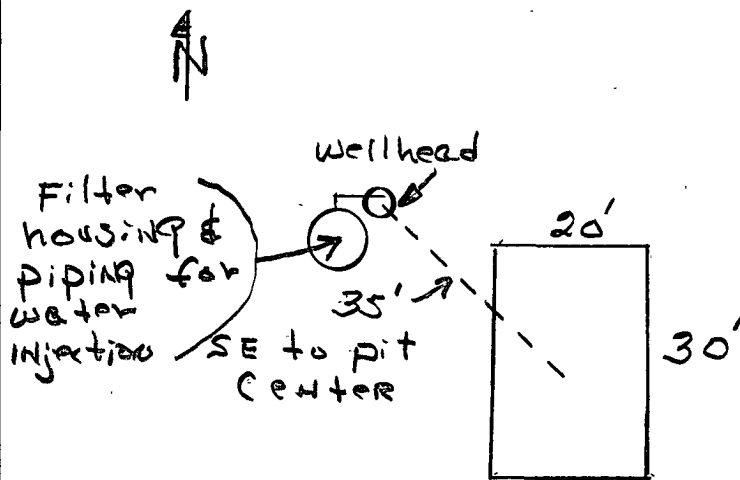 N
wellhead
Filter
housing &
piping for
water
injection
20'
35'
SE to pit
Center
30'